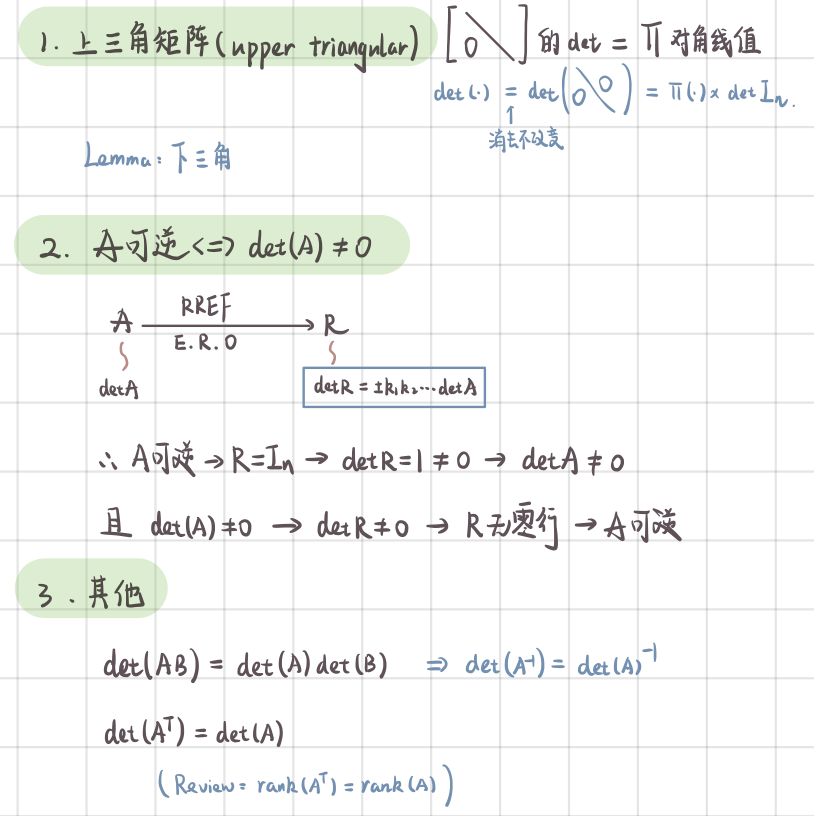 1. 上三角矩阵(upper triangular) [0\] 的 det = Π 对角线值
det(·) = det(0\0) = Π(·)× det Iₙ.
↑
消去不改变
Lemma: 下三角
2. A可逆 <=> det(A) ≠ 0
A —RREF / E.R.O→ R
detA
detR = ±k₁k₂...detA
∴ A可逆 → R=Iₙ → detR=1≠0 → detA≠0
且 det(A)≠0 → detR≠0 → R无零行 → A可逆
3. 其他
det(AB) = det(A)det(B) ⇒ det(A⁻¹) = det(A)⁻¹
det(Aᵀ) = det(A)
(Review: rank(Aᵀ) = rank(A))